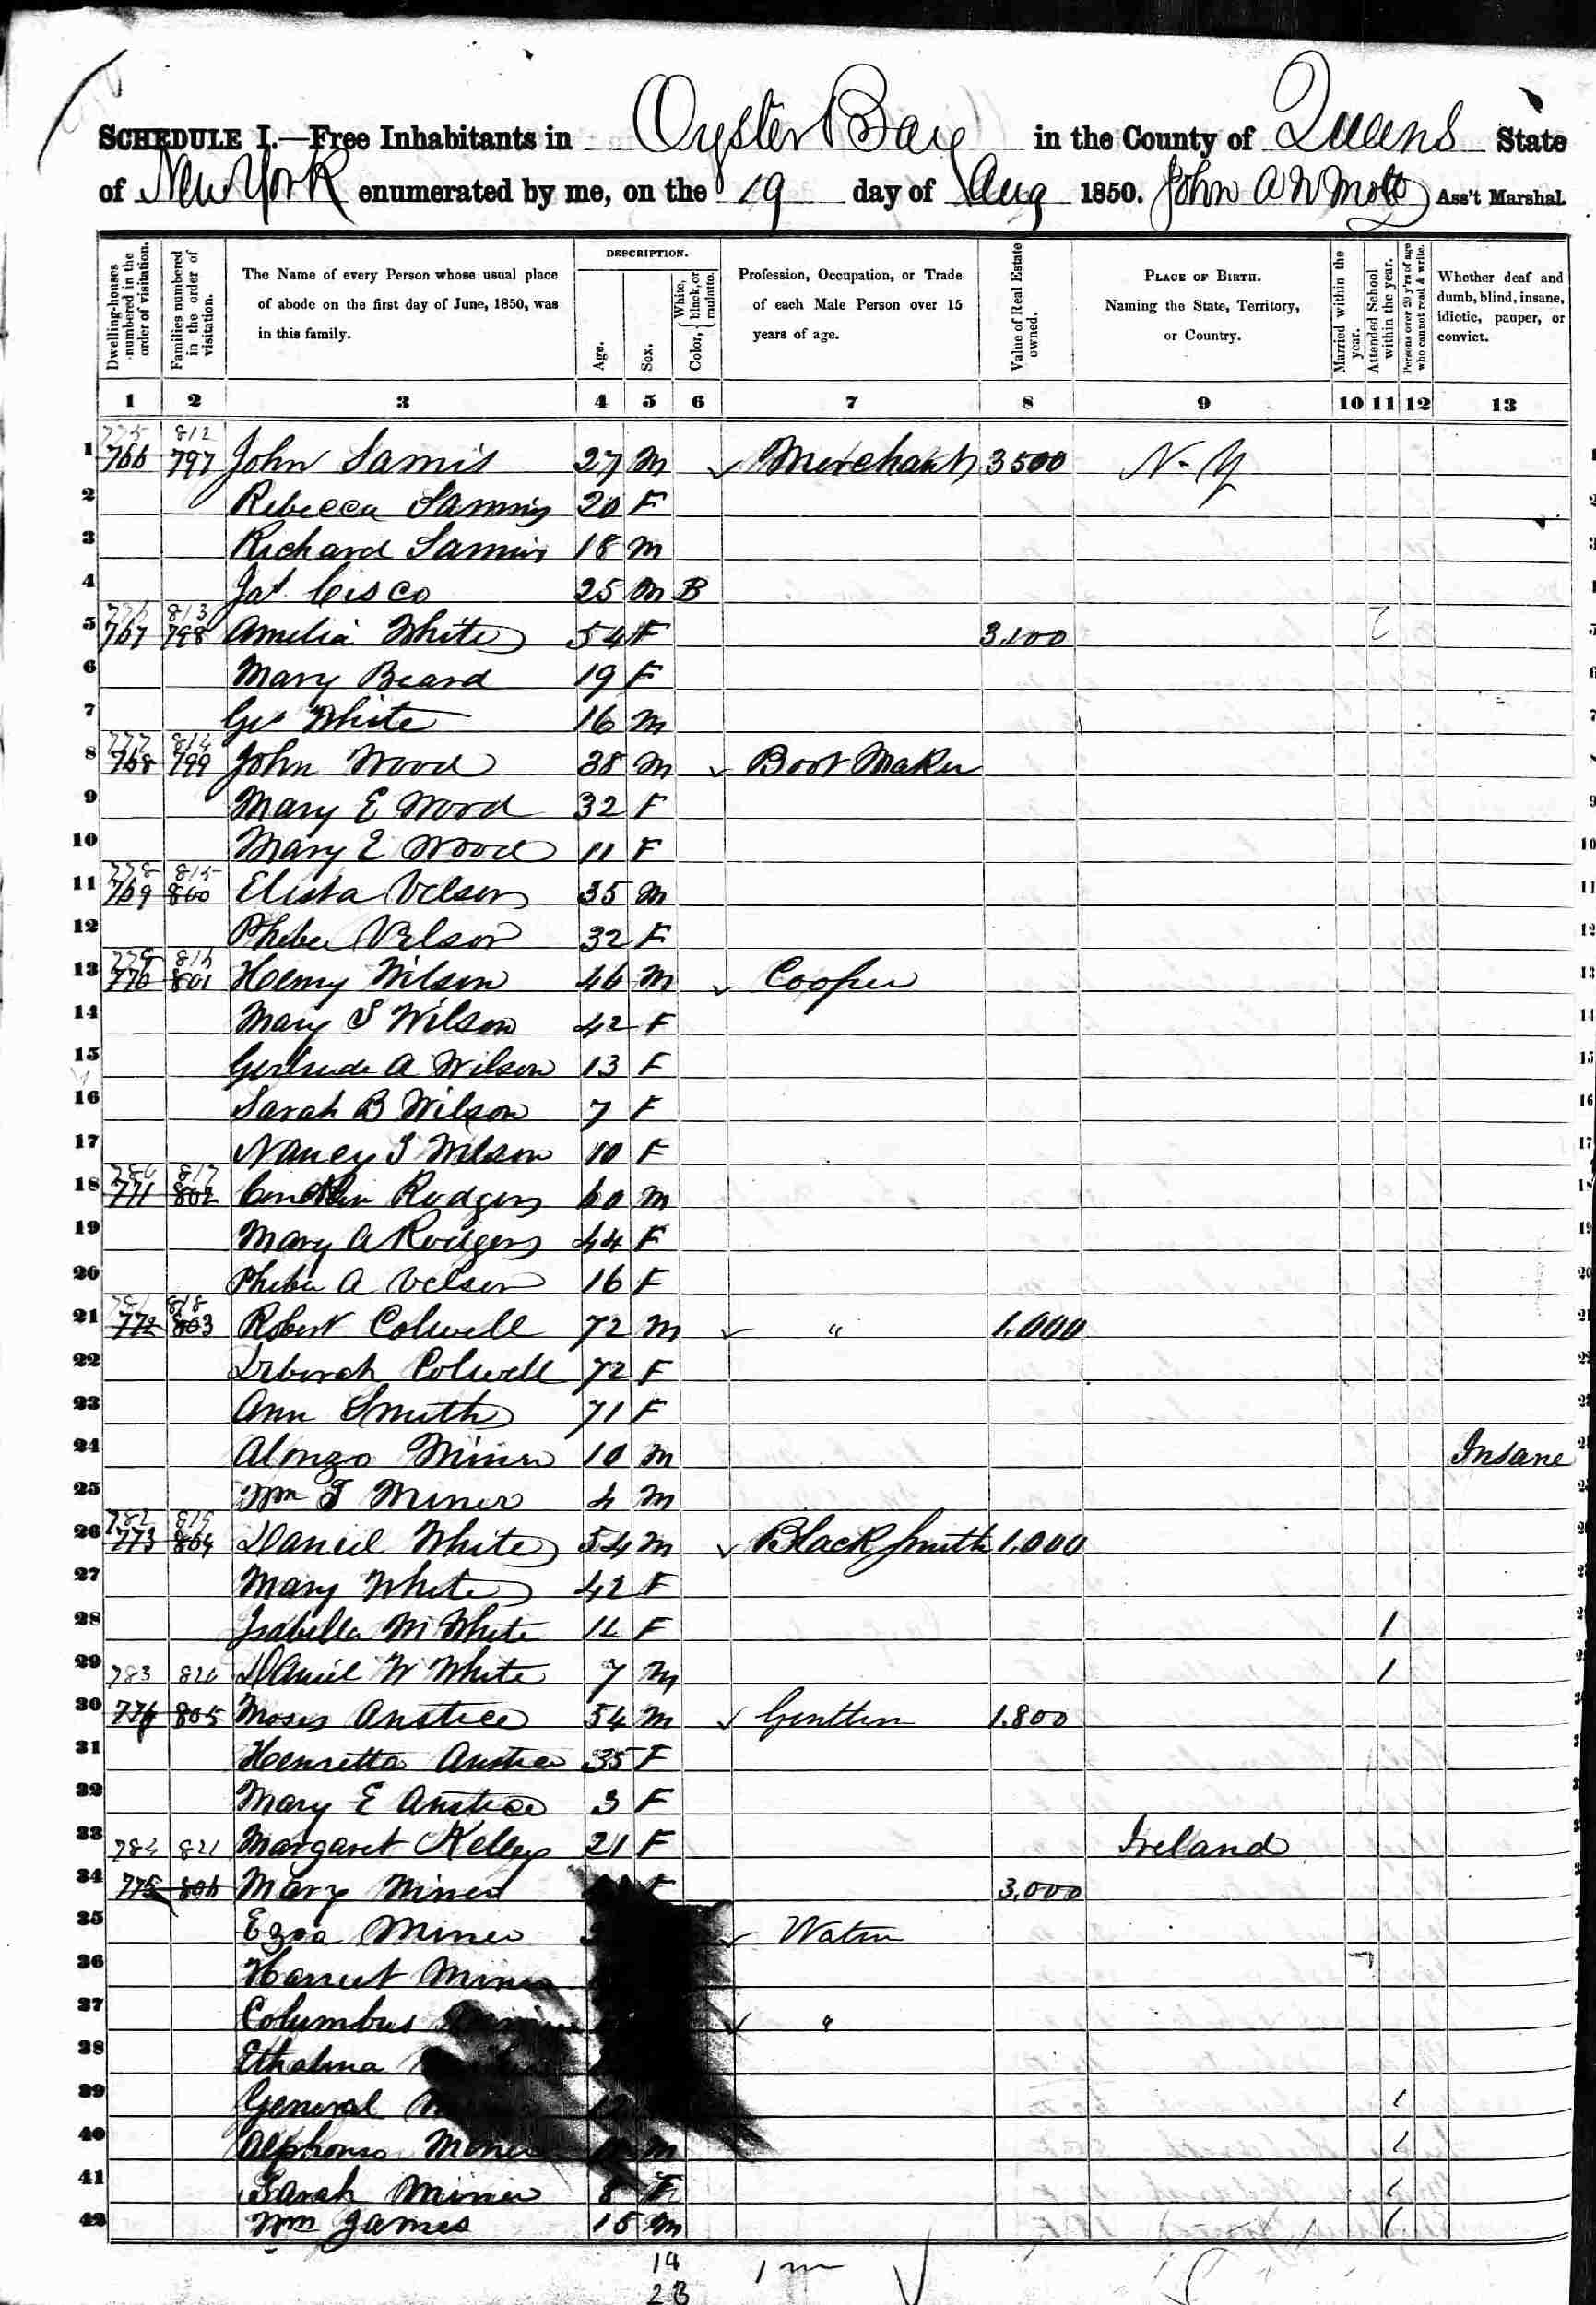 SCHEDULE I.—Free Inhabitants in Oyster Bay in the County of Queens State
of New York enumerated by me, on the 19 day of Aug 1850. John A W Mott Ass't Marshal.
Dwelling-houses numbered in the order of visitation.
Families numbered in the order of visitation.
The Name of every Person whose usual place of abode on the first day of June, 1850, was in this family.
DESCRIPTION.
Age.
Sex.
Color, { White, black, or mulatto.
Profession, Occupation, or Trade of each Male Person over 15 years of age.
Value of Real Estate owned.
PLACE OF BIRTH. Naming the State, Territory, or Country.
Married within the year.
Attended School within the year.
Persons over 20 y'rs of age who cannot read & write.
Whether deaf and dumb, blind, insane, idiotic, pauper, or convict.
1 2 3 4 5 6 7 8 9 10 11 12 13
775 812
1 766 797 John Samis 27 M Merchant 3500 N.Y
2 Rebecca Sammis 20 F
3 Richard Sammis 18 M
4 Jas. Cisco 25 M B
776 813
5 767 798 Amelia White 54 F 3,100
6 Mary Beard 19 F
7 Geo White 16 M
777 814
8 768 799 John Wood 38 M Boot Maker
9 Mary E Wood 32 F
10 Mary E Wood 11 F
778 815
11 769 800 Elisha Velsor 35 M
12 Phebe Velsor 32 F
779 816
13 770 801 Henry Wilson 46 M Cooper
14 Mary S Wilson 42 F
15 Gertrude A Wilson 13 F
16 Sarah B Wilson 7 F
17 Nancy S Wilson 10 F
780 817
18 771 802 Rodgers 60 M
19 Mary A Rodgers 44 F
20 Phebe A Velsor 16 F
781 818
21 772 803 Robert Colwell 72 M " 1.000
22 Deborah Colwell 72 F
23 Ann Smith 71 F
24 Alonzo Miner 10 M Insane
25 Wm T Miner 4 M
782 819
26 773 804 Daniel White 54 M Black Smith 1.000
27 Mary White 42 F
28 Isabella M White 12 F 1
29 783 820 Daniel W White 7 M 1
30 774 805 Moses Anstice 54 M Gentlem 1.800
31 Henretta Anstice 35 F
32 Mary E Anstice 3 F
33 784 821 Margaret Kelley 21 F Ireland
34 775 806 Mary Miner F 3,000
35 Ezra Miner Waterm
36 Harriet Miner
37 Columbus "
38 Ethalina
39 General 1
40 Alphonso Miner M 1
41 Sarah Miner 8 F 1
42 Wm James 15 M 1
14 1 m
23